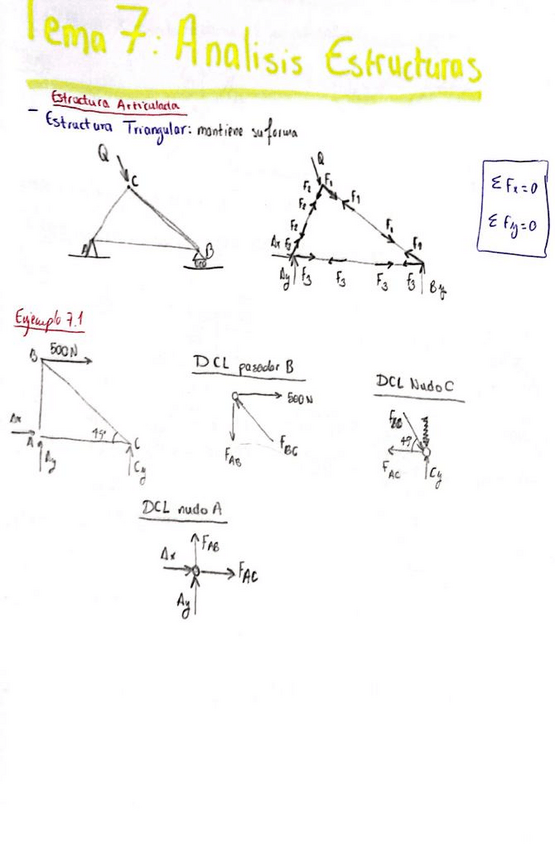 Tema 7: Analisis Estructuras
Estructura Articulada
- Estructura Triangular: mantiene su forma
Q
C
A
B
Q
F2 F1
F2 F1
F2 F1
Ax F2 F1
Ay F3 F3 F3 F3 By
Σ Fx = 0
Σ Fy = 0
Ejemplo 7.1
B 500N
Ax
A 45° C
Ay
Cy
DCL pasador B
500N
FAB
FBC
DCL Nudo C
45°
FAC
Cy
DCL nudo A
FAB
Ax
FAC
Ay